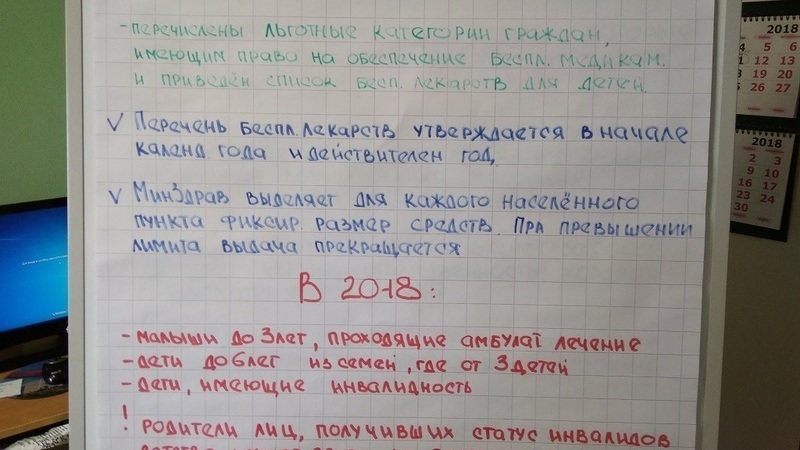 - перечислены льготные категории граждан,
имеющим право на обеспечение беспл. медикам.
и приведён список бесп. лекарств для детей.
V Перечень беспл. лекарств утверждается в начале
календ. года и действителен год.
V МинЗдрав выделяет для каждого населённого
пункта фиксир. размер средств. При превышении
лимита выдача прекращается
В 2018:
- малыши до 3 лет, проходящие амбулат лечение
- дети до 6 лет из семей, где от 3 детей
- дети, имеющие инвалидность
! родители лиц, получивших статус инвалидов
2018
5 6
12 13
19 20
26 27
2018
2 3
9 10
16 17
23 24
30